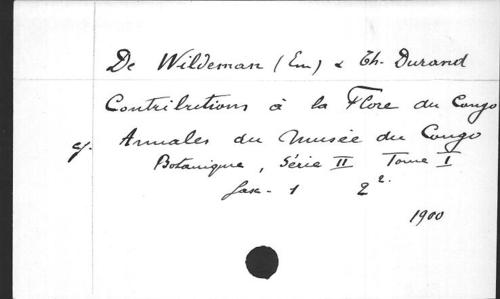 De Wildeman (Em) & Th. Durand
Contributions à la Flore du Congo
cf. Annales du Musée du Congo
Botanique, Série II Tome I
fasc. 1 2².
1900